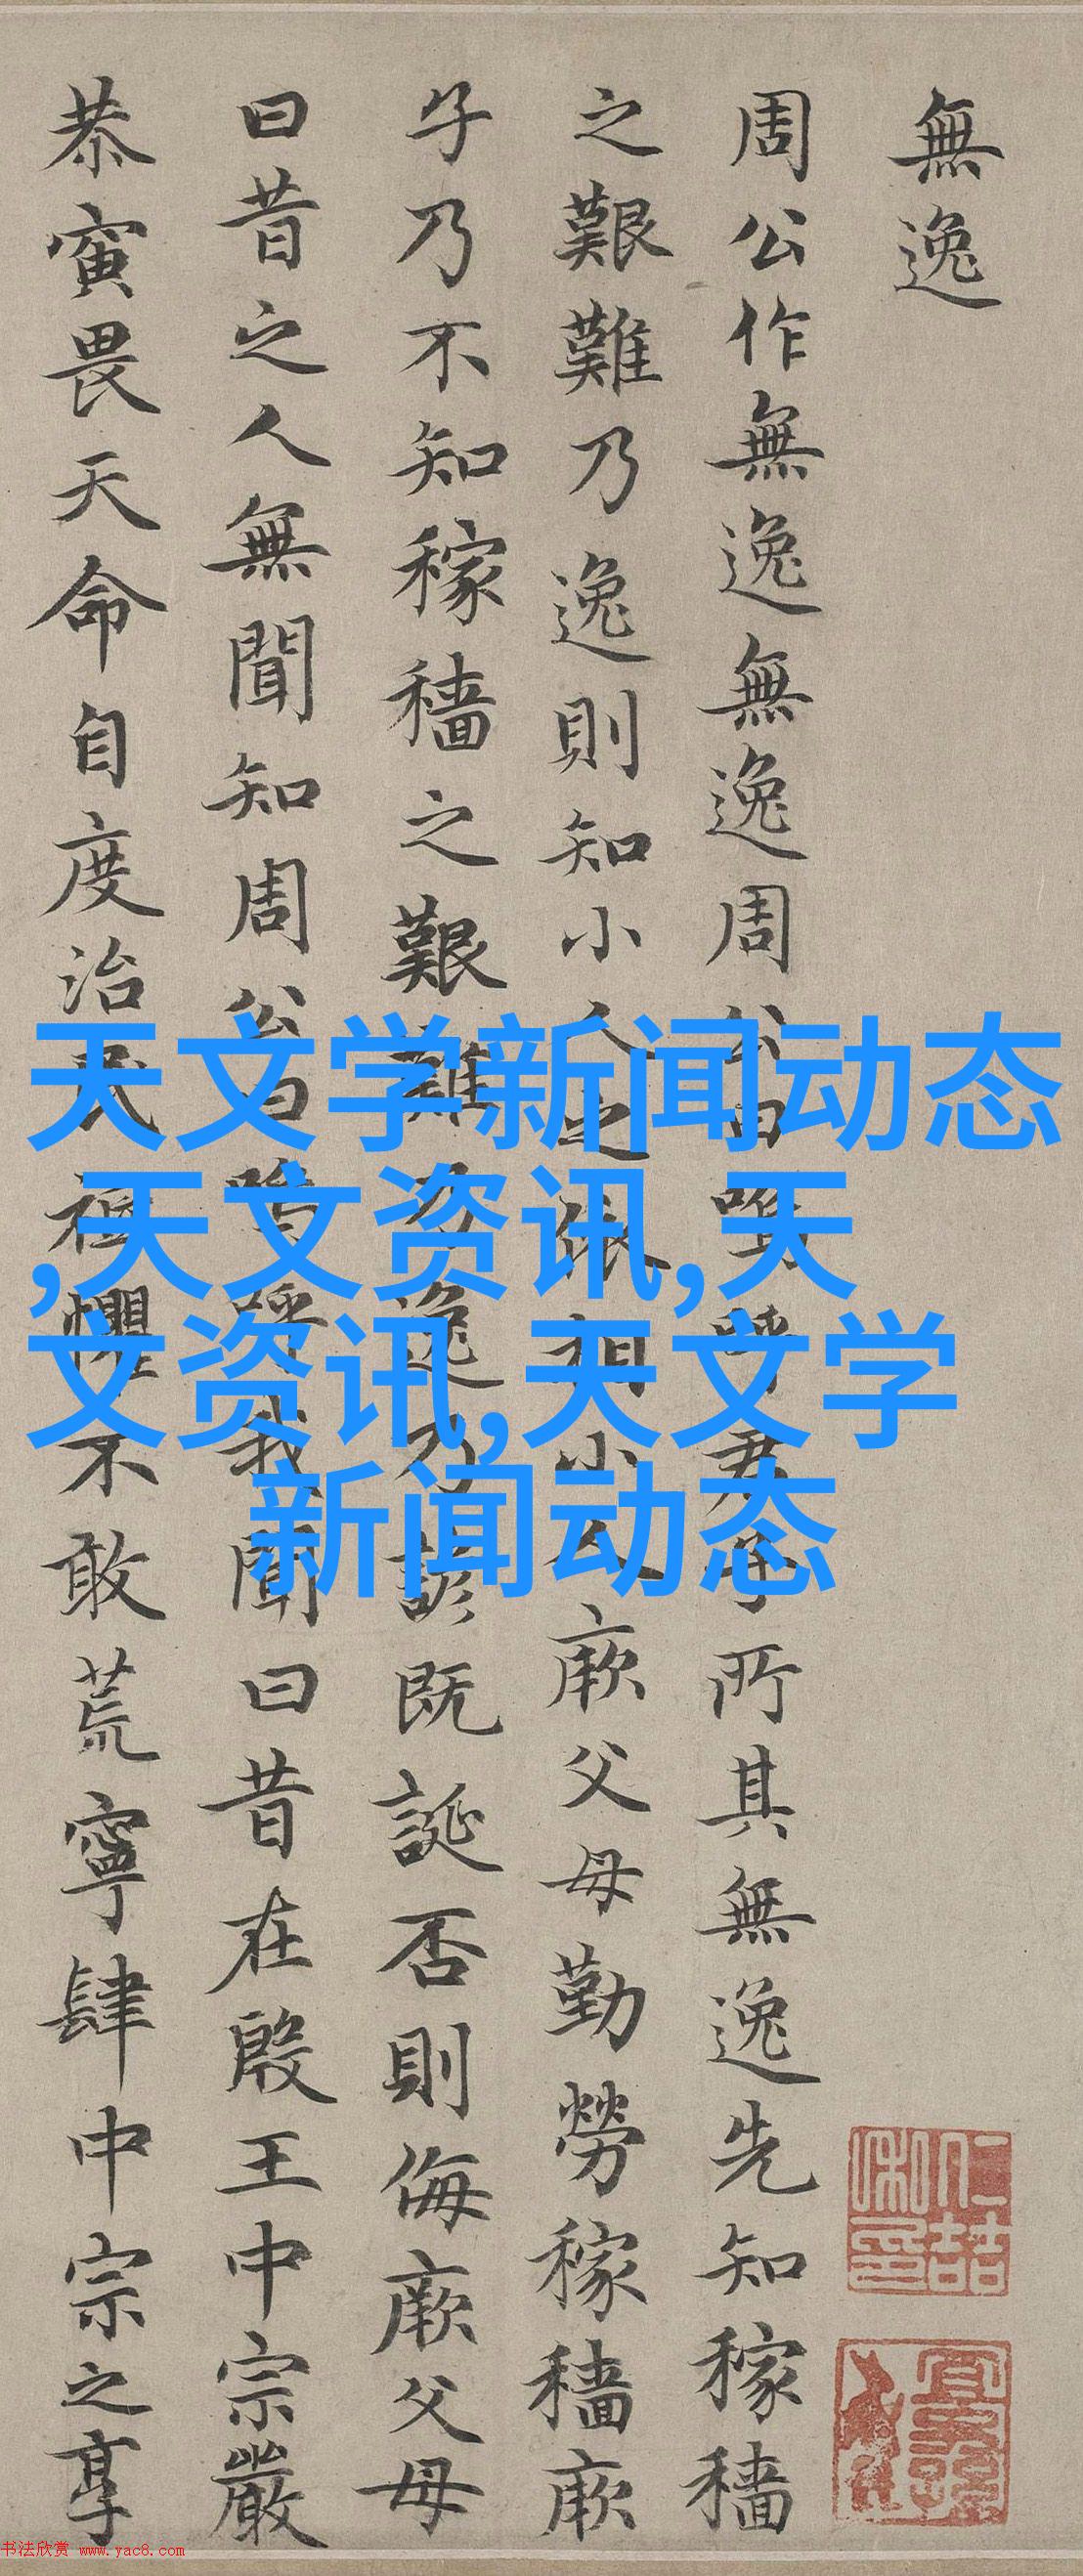 無逸
周公作無逸無逸周公曰嗚呼君子所其無逸先知稼穡
之艱難乃逸則知小人之相小人厥父母勤勞稼穡厥
子乃不知稼穡之艱難乃逸乃諺既誕否則侮厥父母
曰昔之人無聞知周公曰嗚呼我聞曰昔在殷王中宗嚴
恭寅畏天命自度治民祗懼不敢荒寧肆中宗之享
天文学新闻动态
,天文资讯,天
文资讯,天文学
新闻动态
书法欣赏 www.yac8.com